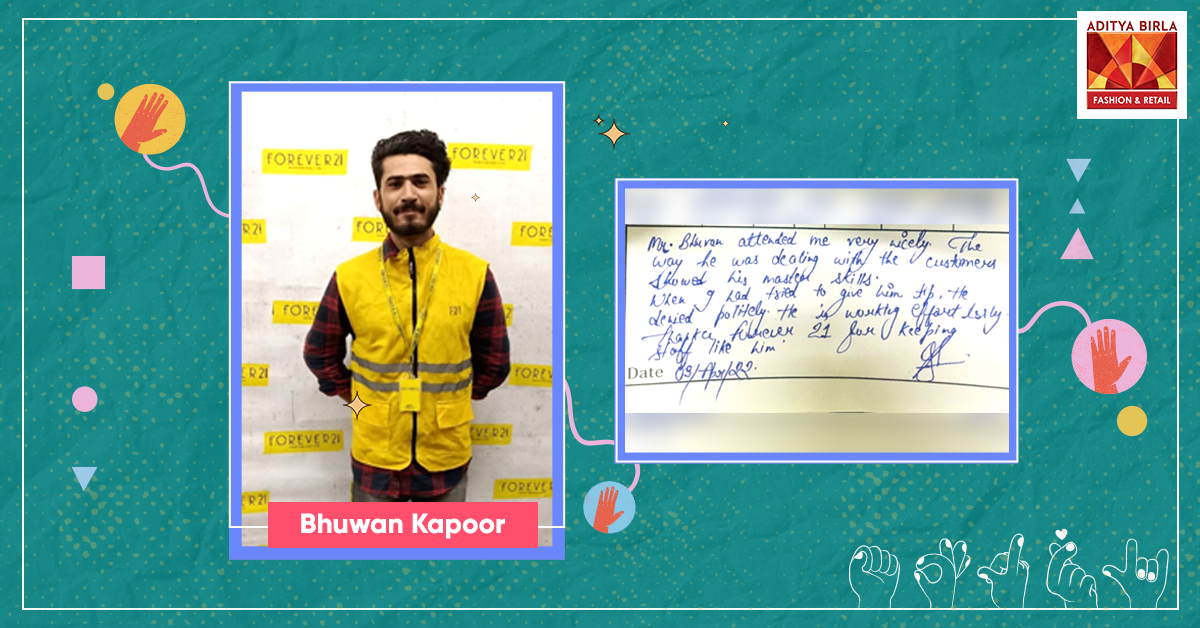 ADITYA BIRLA
FASHION & RETAIL
FOREVER21
FOREVER21
21
FOR
FORE
FORE
F21
21
FOREVER
FOREVER21
21
FOREVER21
21
Bhuwan Kapoor
Mr. Bhuvan attended me very nicely. The
way he was dealing with the customers
showed his master skills.
When I had tried to give him tip, He
denied politely. He is working effortlessly.
Thanks forever 21 for keeping
staff like him
Date 09/Apr/22.